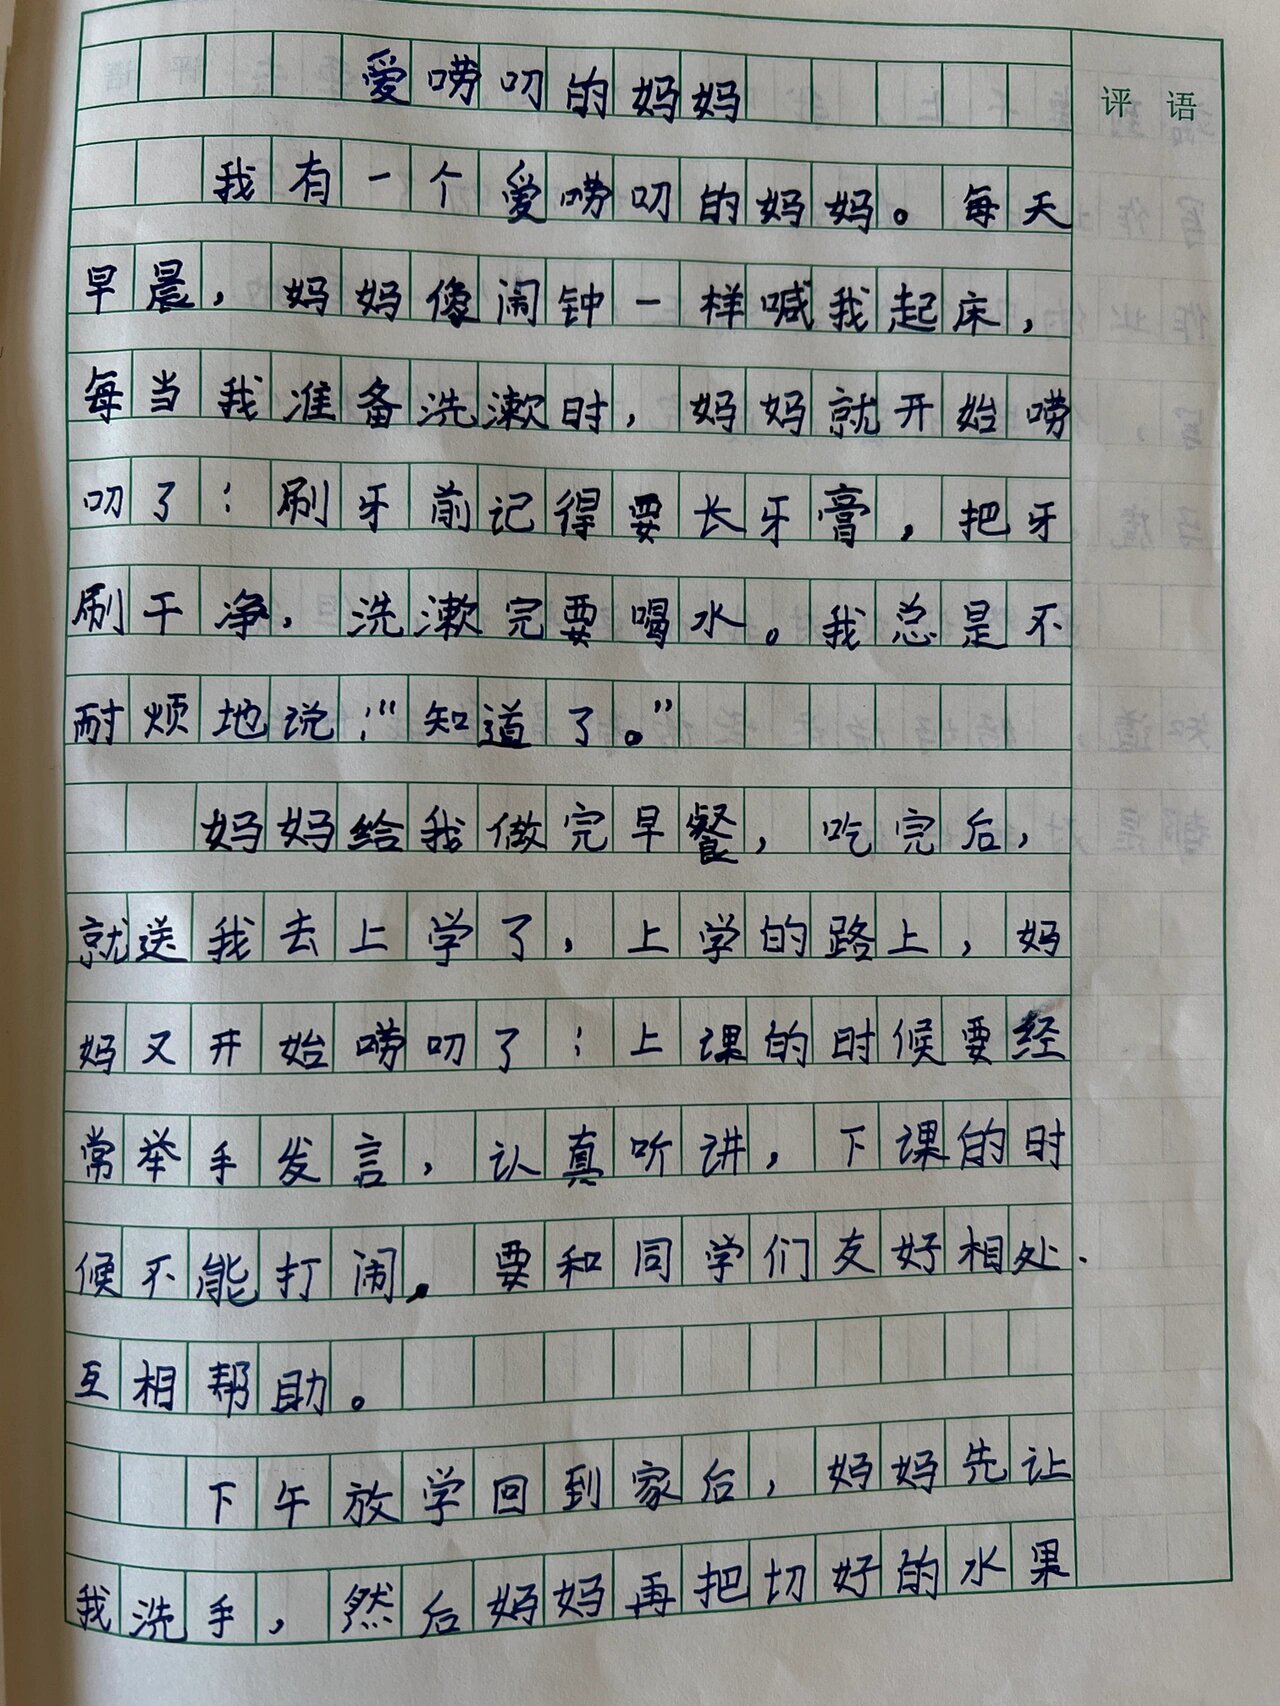 爱唠叨的妈妈
评语
我有一个爱唠叨的妈妈。每天
早晨，妈妈像闹钟一样喊我起床，
每当我准备洗漱时，妈妈就开始唠
叨了：刷牙前记得要长牙膏，把牙
刷干净，洗漱完要喝水。我总是不
耐烦地说：“知道了。”
妈妈给我做完早餐，吃完后，
就送我去上学了，上学的路上，妈
妈又开始唠叨了：上课的时候要经
常举手发言，认真听讲，下课的时
候不能打闹。要和同学们友好相处.
互相帮助。
下午放学回到家后，妈妈先让
我洗手，然后妈妈再把切好的水果